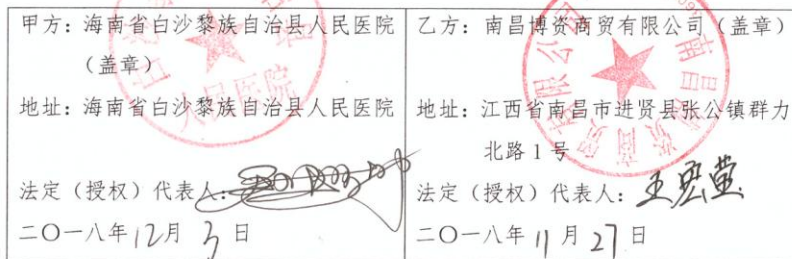 甲方：海南省白沙黎族自治县人民医院
（盖章）
地址：海南省白沙黎族自治县人民医院
法定（授权）代表人：
二〇一八年12月3日
乙方：南昌博资商贸有限公司（盖章）
地址：江西省南昌市进贤县张公镇群力
北路1号
法定（授权）代表人：王宏萤
二〇一八年11月27日
人民医院